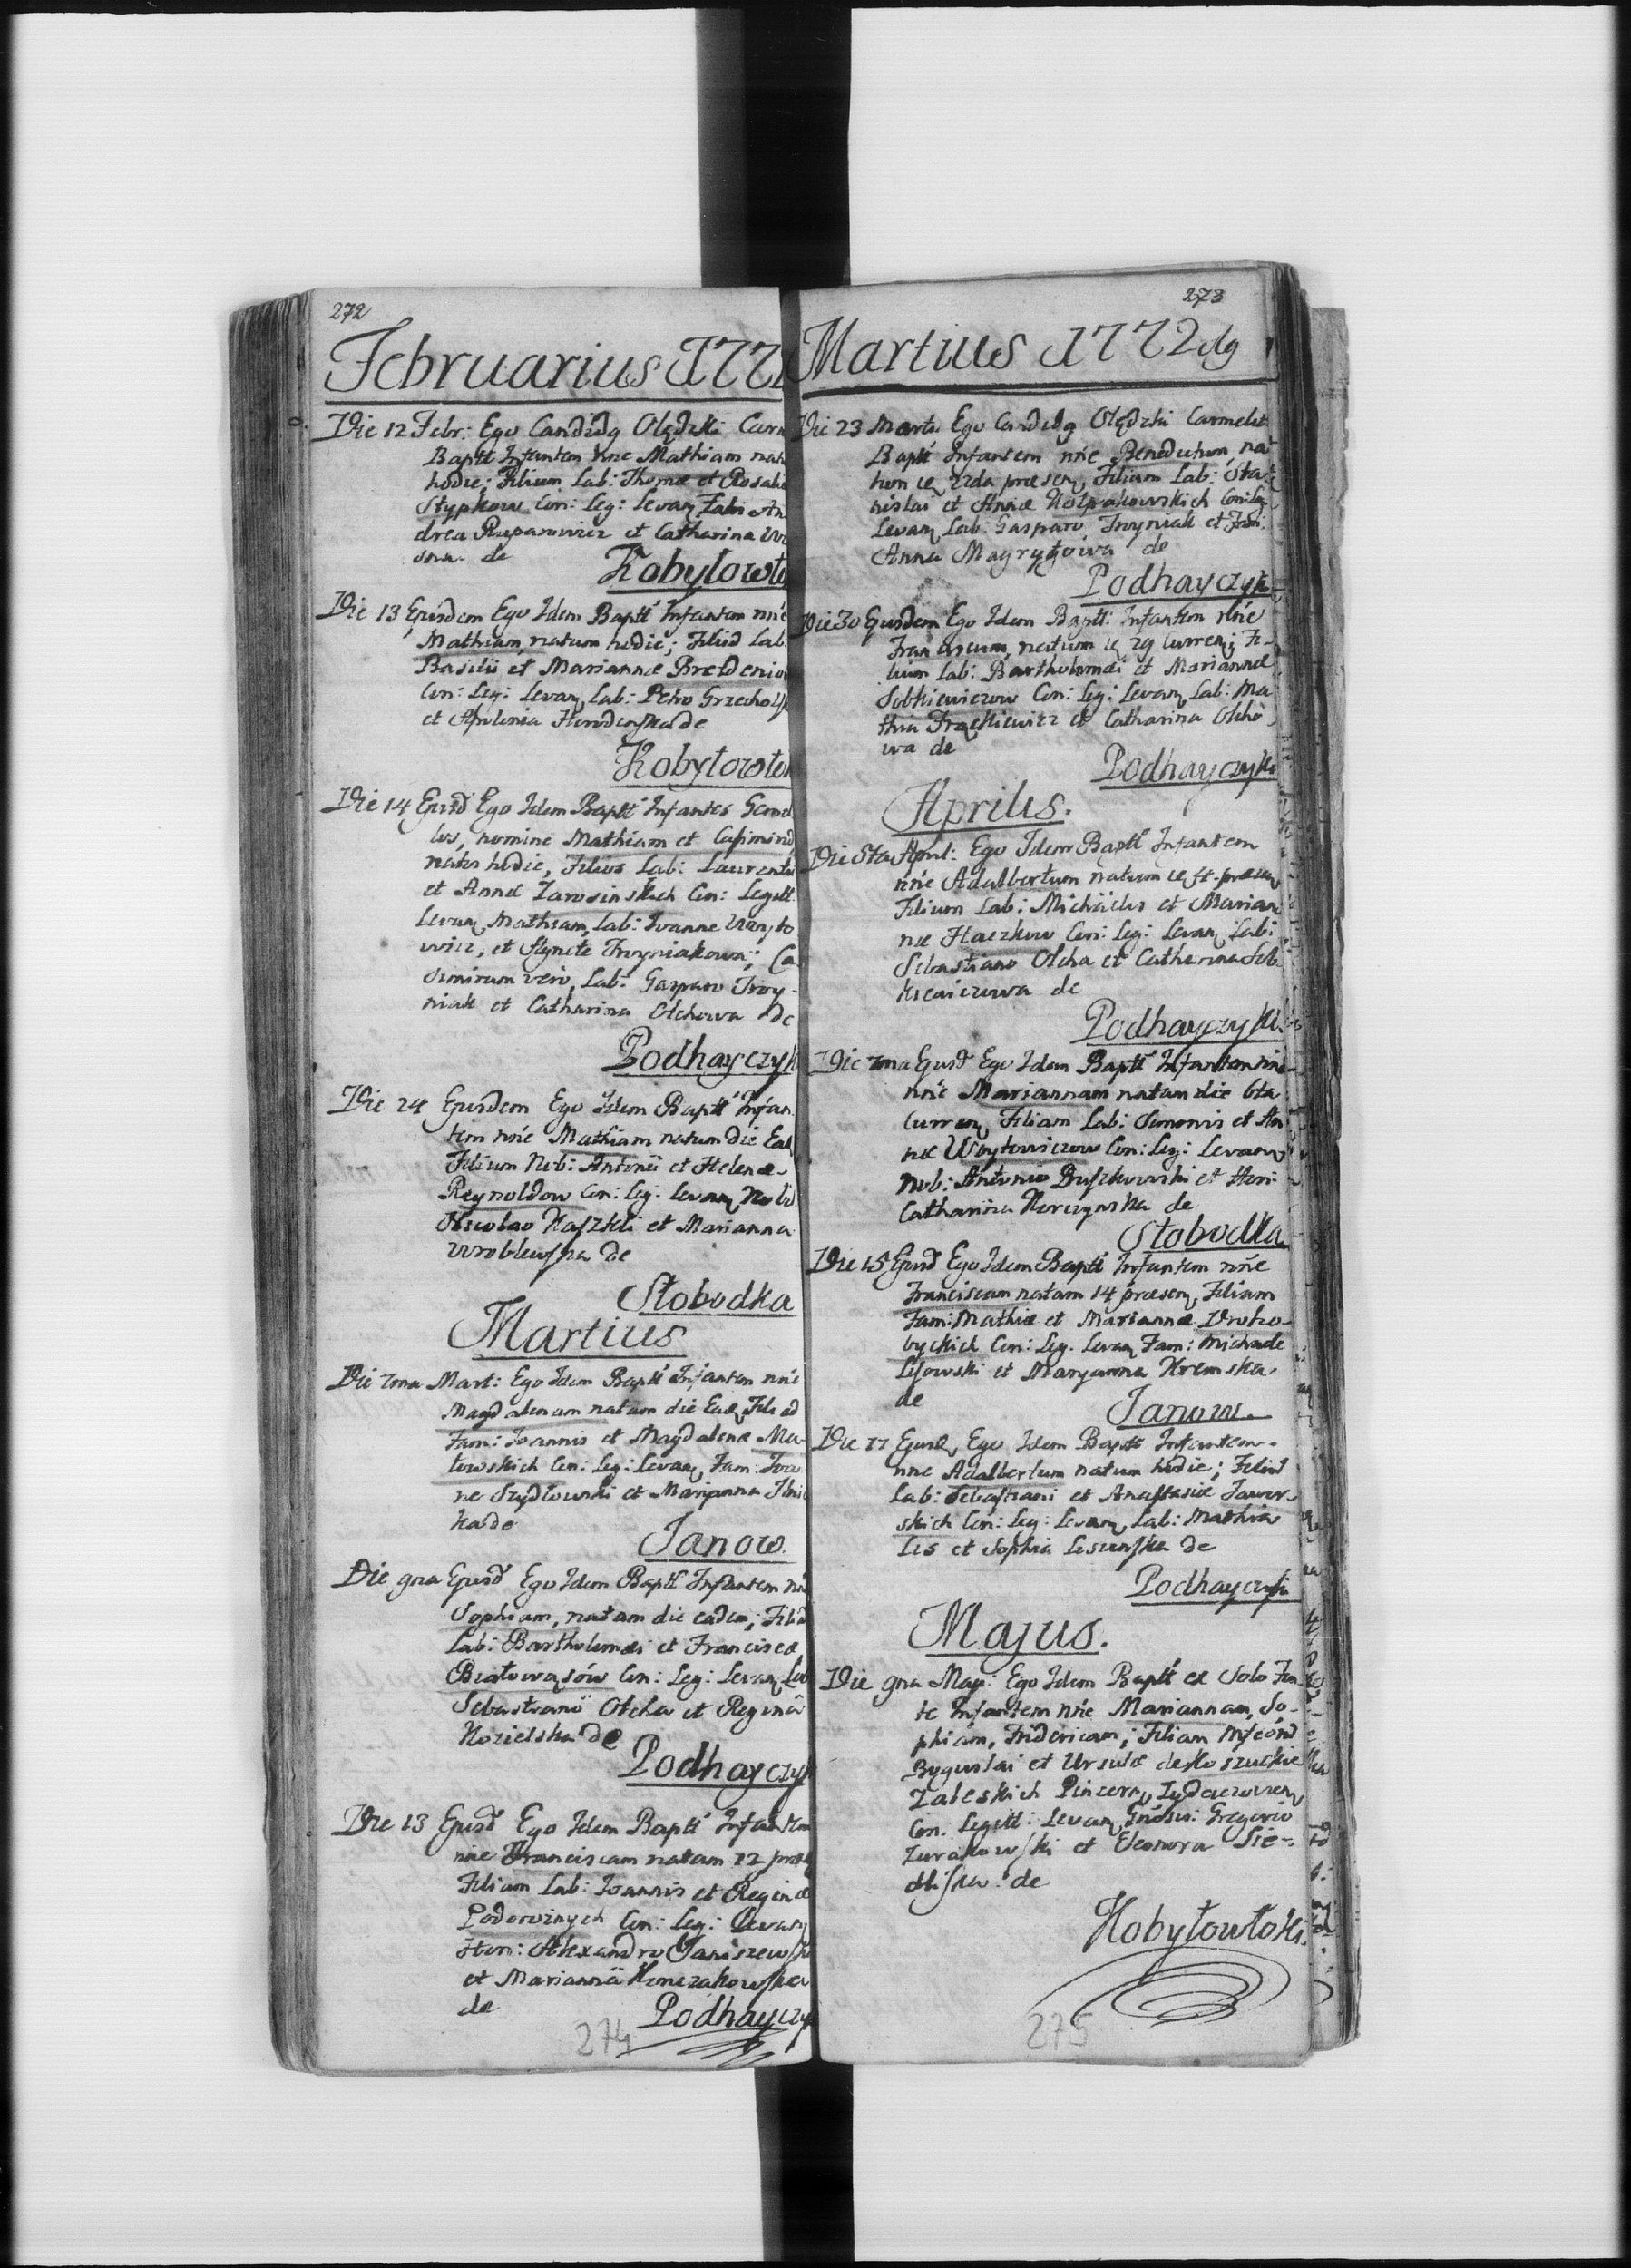 272
Februarius 177
Die 12 Febr: Ego Candidg Olędzki Carm
Baptt Infantem nne Mathiam nat
hodie; Filium Lab: Thomæ et Rosalie
Stypkow Con: Leg: Levan Fabri An
drea Ruparowicz et Catharina
sna de
Kobylowło
Die 13 Ejusdem Ego Idem Baptt Infantem nne
Mathiam, natum hodie; Filiū Lab:
Basilii et Mariannæ Bredenio
Con: Leg: Levan, Lab: Petro Grzecholsk
et Apolonia Horodenska de
Kobyłowło
Die 14 Ejusd Ego Idem Baptt Infantes Gemel
los, nomine Mathiam et Casimirū
natos hodie, Filios Lab: Laurentii
et Annæ Jarosinskich Con: Legitt.
Levan Mathiam, Lab: Ivanne Woyto
wicz, et Agnete Troyniakowa; Ca
simirum vero, Lab: Gasparo Troy-
niak et Catharina Olchowa de
Podhayczyk
Die 24 Ejusdem Ego Idem Baptt Infan
tem nne Mathiam natum die Ead
Filium Nob: Antonii et Helenæ
Reynoldow Con: Leg: Levan Nobil
Nicolao Kaszkli et Marianna
Wroblewska de
Słobodka
Martius
Die 7ma Mart: Ego Idem Baptt Infantem nne
Magdalenam natam die Ead, Filiā
Fam: Ioannis et Magdalenæ Ma-
towskich Con: Leg: Levan, Fam: Ioan
ne Szydłowski et Marianna Ilnic
ka de
Janow.
Die 9na Ejusd Ego Idem Baptt Infantem nne
Sophiam, natam die eadem; Filiā
Lab: Bartholomæi et Franciscæ
Białowąsów Con: Leg: Levan, Lab
Sebastiano Olcha et Regina
Kozielska de
Podhayczyk
Die 13 Ejusd Ego Idem Baptt Infantem
nne Franciscam natam 12 præs
Filiam Lab: Ioannis et Reginæ
Podowinych Con: Leg: Levan
Hon: Alexandro Janiszewski
et Marianna Konczakowska
de
Podhayczy
274
273
Martius 1772dg
Die 23 Martii Ego Candidg Olędzki Carmelit
Baptt Infantem nne Benedictum na
tum 22da præsen, Filium Lab: Sta-
nislai et Annæ Kołpakowskich Con: Leg
Levan Lab: Gasparo Troyniak et Fam:
Anna Magryłowa de
Podhayczyk
Die 30 Ejusdem Ego Idem Baptt: Infantem nne
Franciscum, natum 29 curren; Fi-
lium Lab: Bartholomæi et Mariannæ
Sobkiewiczow Con: Leg: Levan Lab: Ma
thia Frąckiewicz et Catharina Olcho
wa de
Podhayczyk
Aprilis.
Die 5ta April: Ego Idem Baptt Infantem
nne Adalbertum natum præsen
Filium Lab: Michaelis et Marian
næ Haczkow Con: Leg: Levan Lab:
Sebastiano Olcha et Catharina Sob
kiewiczowa de
Podhayczyki
Die 7ma Ejusd Ego Idem Baptt Infantem
nne Mariannam natam die 6ta
curren Filiam Lab: Simonis et An
næ Woytowiczow Con: Leg: Levan
Nob: Antonio Bruszkowski et Hon:
Catharina Korczynska de
Słobodka
Die 15 Ejusd Ego Idem Baptt Infantem nne
Franciscam natam 14 præsen, Filiam
Fam: Mathiæ et Mariannæ Droho-
byckich Con: Leg. Levan Fam: Michaele
Lisowski et Maryanna Kremska
de
Janow.
Die 17 Ejusd, Ego Idem Baptt Infantem
nne Adalbertum natum hodie; Filiū
Lab: Sebastiani et Anastasiæ Jawor-
skich Con: Leg: Levan, Lab: Mathia
Lis et Sophia Lesunska de
Podhayczyki
Majus.
Die 9na Maji: Ego Idem Baptt ex Solo Fon
te Infantem nne Mariannam, So-
phiam, Fridericam; Filiam
Boguslai et Ursulæ de Koszuckie
Zaleskich Pincern, Zydaczovien,
Con. Legitt: Levan Gnosis: Gregorio
Zurakowski et Eleonora Sie-
dliska de
Kobyłowłoki.
275